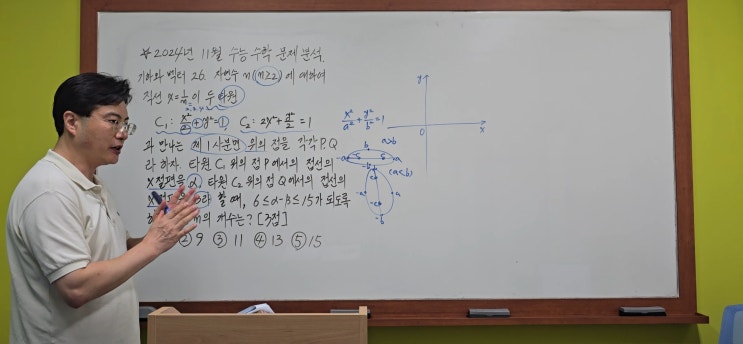 ☆ 2024년 11월 수능 수학 문제 분석.
기하와 벡터 26. 자연수 m(m≥2)에 대하여
직선 x=1/m이 두 타원
C₁: x²/2+y²=1, C₂: 2x²+y²/2=1
와 만나는 제1사분면 위의 점을 각각 P, Q
라 하자. 타원 C₁ 위의 점 P에서의 접선의
x절편을 α, 타원 C₂ 위의 점 Q에서의 접선의
할 때, 6≤α-β≤15가 되도록
m의 개수는? [3점]
② 9 ③ 11 ④ 13 ⑤ 15
x²/a²+y²/b²=1
a>b
b
-a
a
-b
(a<b)
b
c
-a
a
-c
-b
y
O
x